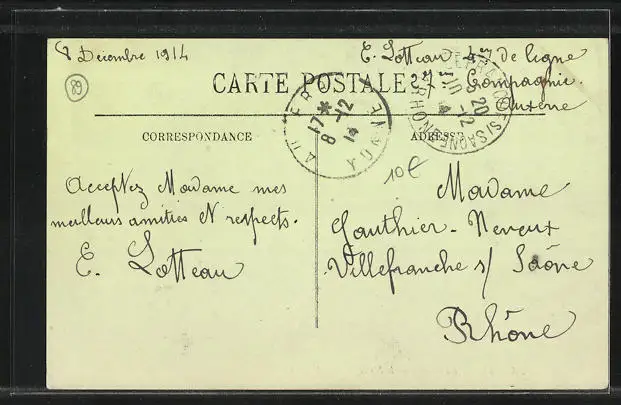 8 Décembre 1914
E. Lotteau 4e de ligne
37e Compagnie.
Auxerre
89
CARTE POSTALE
AUXERRE
17 *
8 -12
14
YONNE
VILLEFRANCHE-S-SAÔNE
RHÔNE
20
-12
CORRESPONDANCE
ADRESSE
10€
Acceptez Madame mes
meilleurs amitiés et respects.
E. Lotteau
Madame
Gauthier-Neveux
Villefranche s/ Saône
Rhône